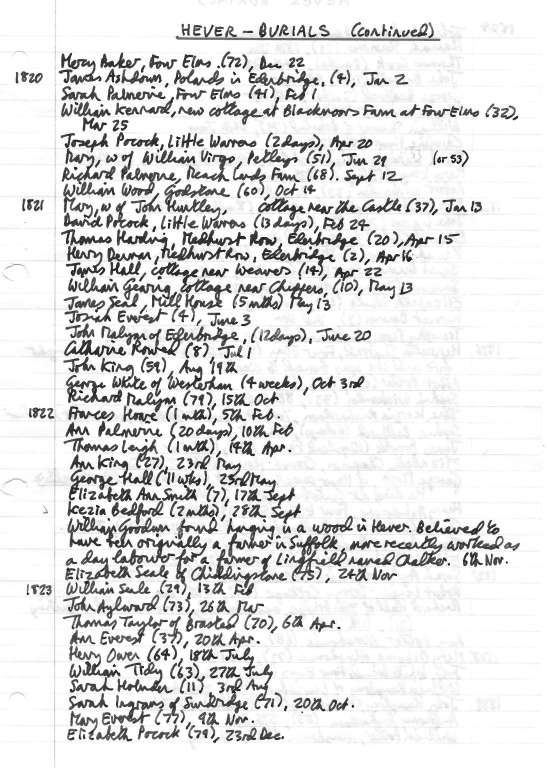 HEVER - BURIALS (continued)
Mercy Baker, Four Elms (72), Dec 22
1820 James Ashdown, Polands in Edenbridge, (4), Jan 2
Sarah Palmerine, Four Elms (41), Feb 1
William Kennard, new cottage at Blackmoors Farm at Four Elms (32),
Mar 25
Joseph Pocock, Little Warrens (2 days), Apr 20
Mary, w of William Virgo, Pettleys (51), Jun 29 (or 53)
Richard Palmerine, Lands Farm (68). Sept 12
William Wood, Godstone (60), Oct 14
1821 Mary, w of John Huntley, cottage near the Castle (37), Jan 13
David Pocock, Little Warrens (13 days), Feb 24
Thomas Harding, Medhurst Row, Edenbridge (20), Apr 15
Henry Denman, Medhurst Row, Edenbridge (2), Apr 16
James Hall, cottage near Weavers (14), Apr 22
William Gearing, cottage near Chippens, (10), May 13
James Seal, Mill House (5 mths) May 13
Josiah Everest (4), June 3
John Malyn of Edenbridge, (12 days), June 20
Catharine Rowed (8), Jul 1
John King (59), Aug 19th
George White of Westerham (4 weeks), Oct 3rd
Richard Malyn (79), 15th Oct
1822 Frances Howe (1 mth), 5th Feb.
Ann Palmerine (20 days), 10th Feb
Thomas Leigh (1 mth), 14th Apr.
Ann King (27), 23rd May
George Hall (11 wks), 23rd May
Elizabeth Ann Smith (7), 17th Sept
Kezia Bedford (2 mths), 28th Sept
William Goodwin found hanging in a wood in Hever. Believed to
have been originally a farmer in Suffolk, more recently worked as
a day labourer for a farmer of Lingfield named Chalker. 6th Nov.
Elizabeth Seale of Chiddingstone (75), 24th Nov
1823 William Seale (29), 13th Feb
John Aylward (73), 26th Mar
Thomas Taylor of Brasted (70), 6th Apr.
Ann Everest (37), 20th Apr.
Henry Owen (64), 18th July
William Tidy (63), 27th July
Sarah Holmden (11), 3rd Aug
Sarah Ingrams of Sundridge (71), 20th Oct.
Mary Everest (77), 9th Nov.
Elizabeth Pocock (79), 23rd Dec.